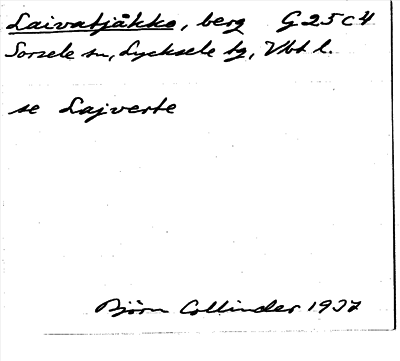 Laivatjåkko, berg G 25 c 4
Sorsele sn, Lycksele tg, Vbt l.
se Lajverte
Björn Collinder 1937